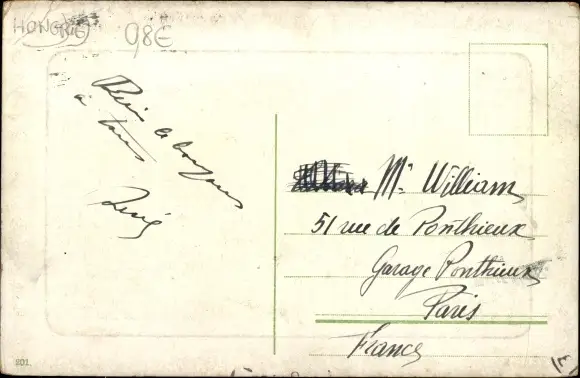 HONGRIE
98E
le bonjour
à tous
Mr. William
51 rue de Ponthieux
Garage Ponthieux
Paris
France
801